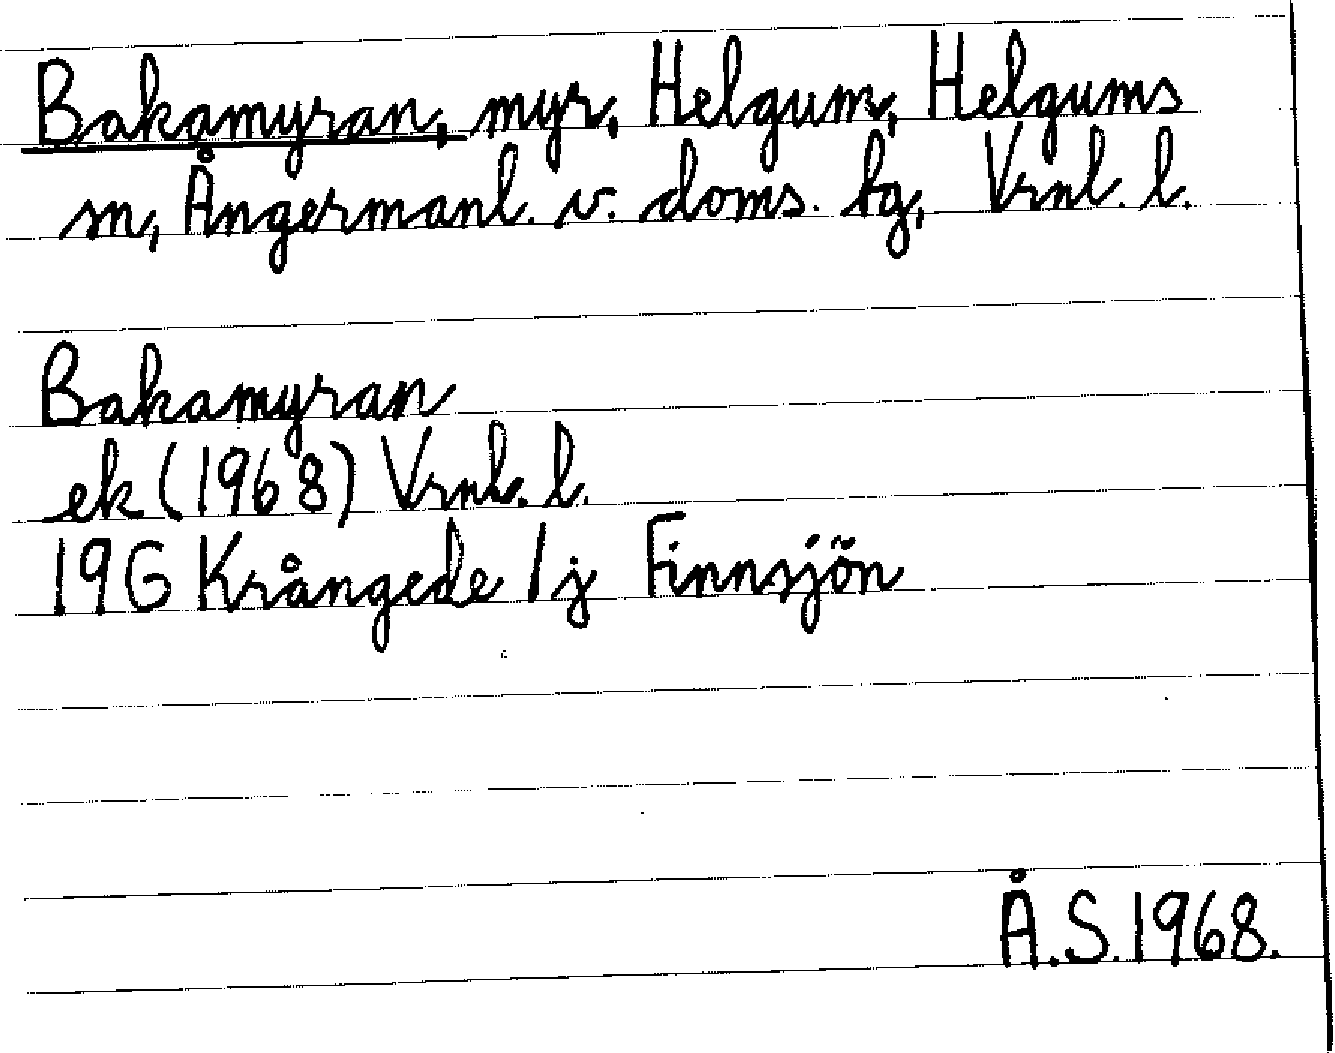 Bakamyran, myr, Helgum, Helgums
sn, Ångermanl. v. doms. hg, Vrnl. l.
Bakamyran
ek (1968) Vrnl. l.
19G Krångede 1j Finnsjön
Å.S.1968.